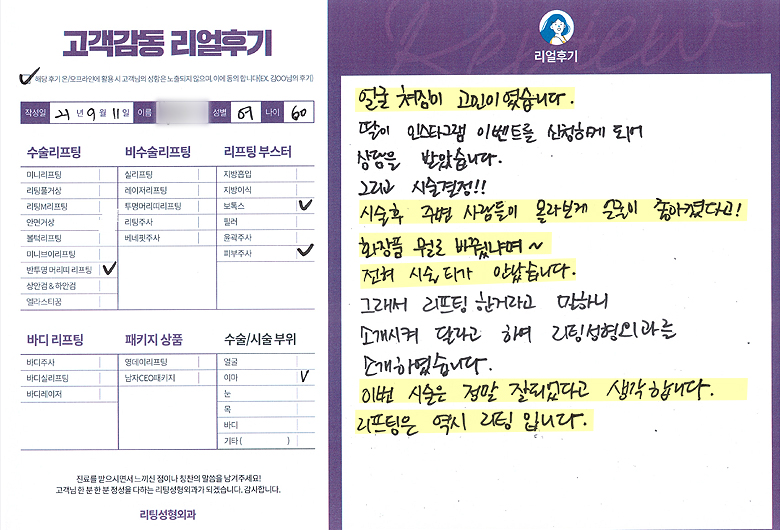 고객감동 리얼후기
해당 후기 온/오프라인에 활용 시 고객님의 성함은 노출되지 않으며, 이에 동의 합니다(EX. 김OO님의 후기)
작성일 21년 9월 11일 이름 성별 여 나이 60
수술리프팅
미니리프팅
리팅풀거상
리팅M리프팅
안면거상
볼턱리프팅
미니브이리프팅
반투명 머리띠 리프팅
상안검 & 하안검
엘라스티꿈
비수술리프팅
실리프팅
레이저리프팅
투명머리띠리프팅
리팅주사
베네핏주사
리프팅 부스터
지방흡입
지방이식
보톡스
필러
윤곽주사
피부주사
바디 리프팅
바디주사
바디실리프팅
바디레이저
패키지 상품
영데이리프팅
남자CEO패키지
수술/시술 부위
얼굴
이마
눈
목
바디
기타 ( )
진료를 받으시면서 느끼신 점이나 칭찬의 말씀을 남겨주세요!
고객님 한 분 한 분 정성을 다하는 리팅성형외과가 되겠습니다. 감사합니다.
리팅성형외과
Review
리얼후기
얼굴 처짐이 고민이였습니다.
딸이 인스타그램 이벤트를 신청하게 되어
상담을 받았습니다.
그리고 시술결정!!
시술후 주변 사람들이 몰라보게 얼굴이 좋아졌다고!
화장품 뭘로 바꿨냐며~
전혀 시술 티가 안났습니다.
그래서 리프팅 한거라고 말하니
소개시켜 달라고 하여 리팅성형외과를
소개하였습니다.
이번 시술은 정말 잘되었다고 생각합니다.
리프팅은 역시 리팅 입니다.